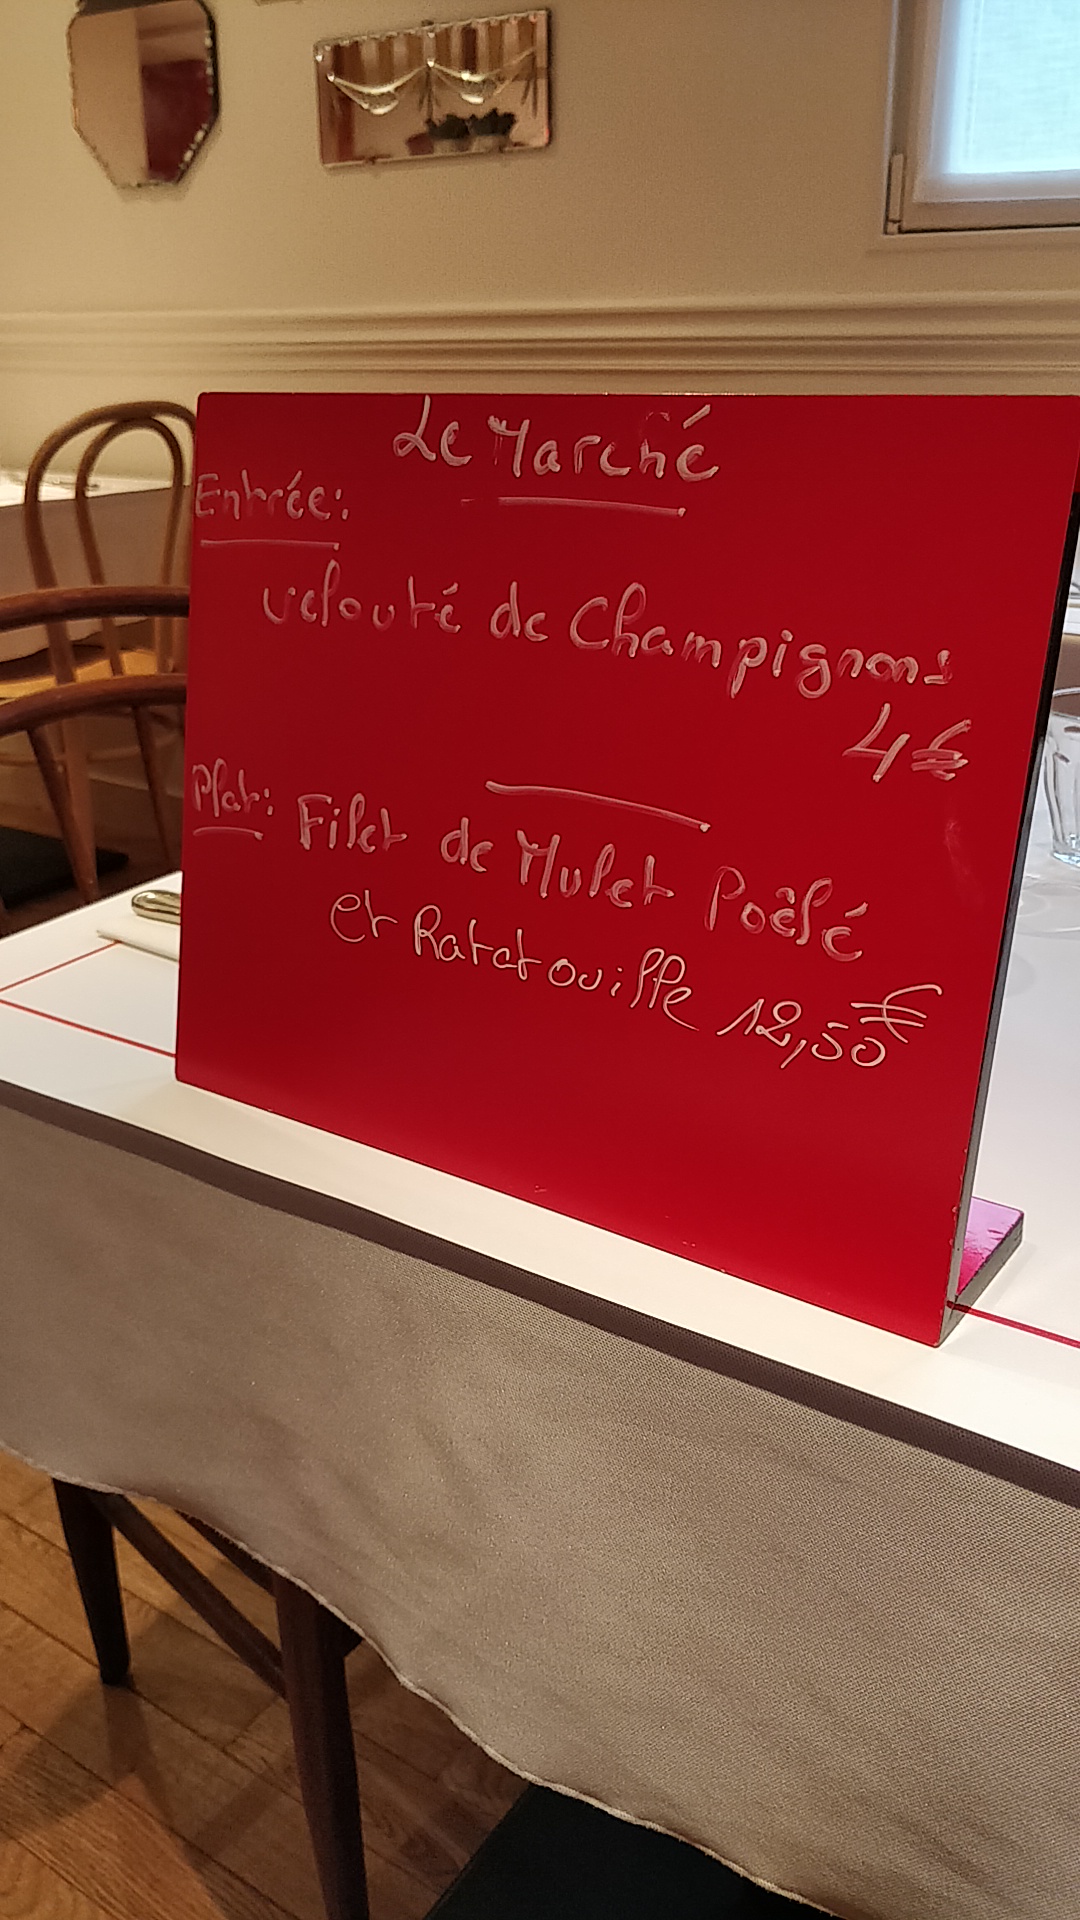 Le Marché
Entrée:
velouté de Champignons
4€
Plat: Filet de Mulet Poêlé
et Ratatouille 12,50€